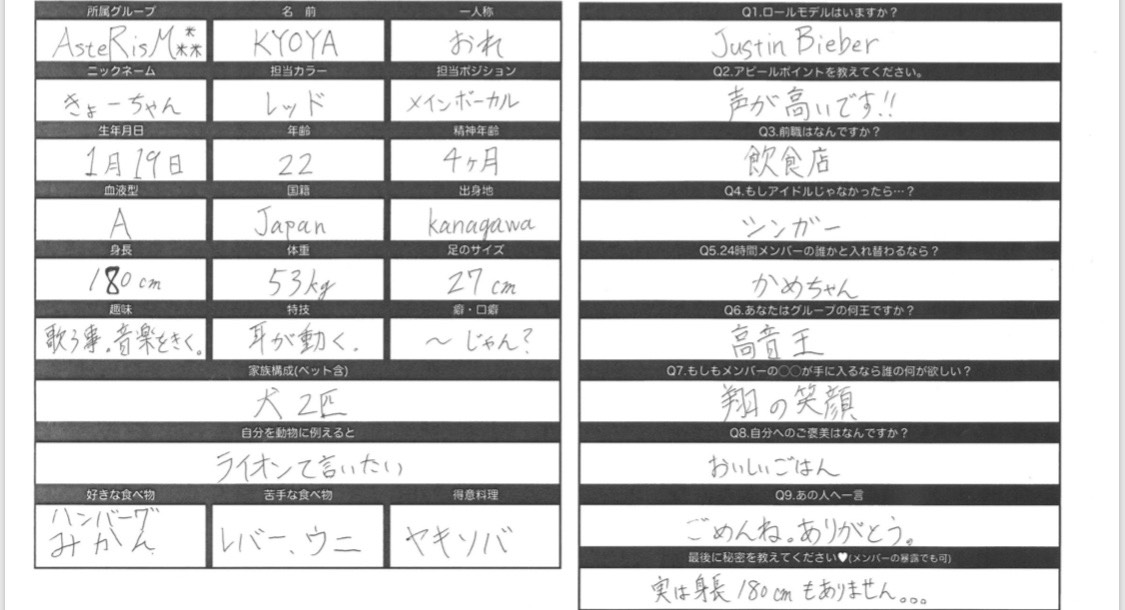 所属グループ 名前 一人称
AsteRisM⁂ KYOYA おれ
ニックネーム 担当カラー 担当ポジション
きょーちゃん レッド メインボーカル
生年月日 年齢 精神年齢
1月19日 22 4ヶ月
血液型 国籍 出身地
A Japan kanagawa
身長 体重 足のサイズ
180cm 53kg 27cm
趣味 特技 癖・口癖
歌う事。音楽をきく。 耳が動く. 〜じゃん?
家族構成(ペット含)
犬2匹
自分を動物に例えると
ライオンて言いたい
好きな食べ物 苦手な食べ物 得意料理
ハンバーグ
みかん レバー、ウニ ヤキソバ
Q1.ロールモデルはいますか?
Justin Bieber
Q2.アピールポイントを教えてください。
声が高いです!!
Q3.前職はなんですか?
飲食店
Q4.もしアイドルじゃなかったら…?
シンガー
Q5.24時間メンバーの誰かと入れ替わるなら?
かめちゃん
Q6.あなたはグループの何王ですか?
高音王
Q7.もしもメンバーの◯◯が手に入るなら誰の何が欲しい?
翔の笑顔
Q8.自分へのご褒美はなんですか?
おいしいごはん
Q9.あの人へ一言
ごめんね。ありがとう。
最後に秘密を教えてください♥(メンバーの暴露でも可)
実は身長180cmもありません。。。